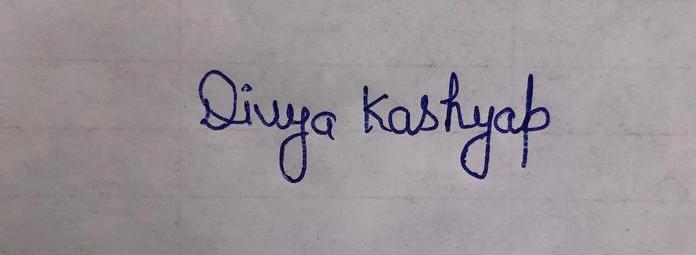 Divya Kashyap